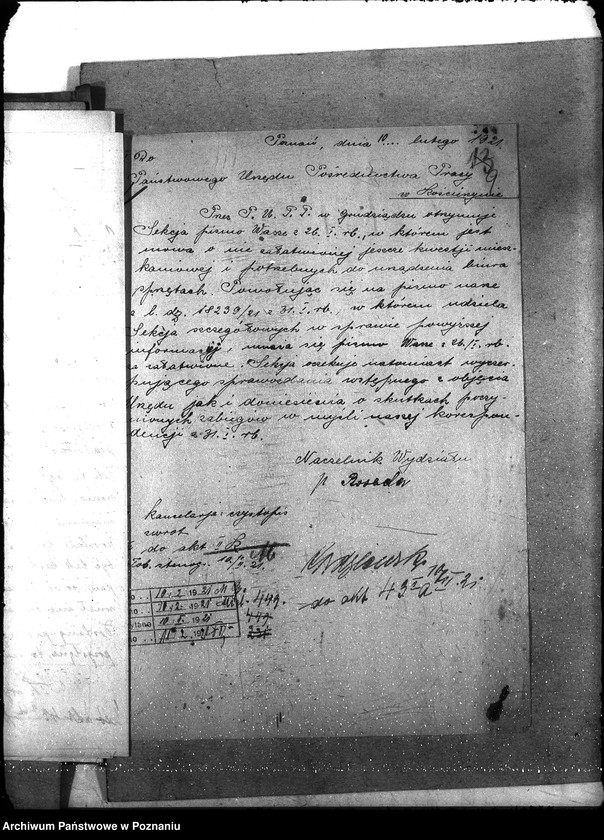 Poznań, dnia 10... lutego 1921.
Do
Państwowego Urzędu Pośrednictwa Pracy
w Kościerzynie
Przez P. U. P. P. w Grudziądzu otrzymuje
Sekcja pismo Wasze z 26. I. rb., w którem jest
mowa o nie załatwionej jeszcze kwestji miesz-
kaniowej i potrzebnych do urządzenia biura
sprzętach. Powołując się na pismo nasze
z l. dz. 18239/21 z 31. I. rb., w którem udziela
Sekcja szczegółowych w sprawie powyższej
informacji, uważa się pismo Wasze z 26/I. rb.
za załatwione. Sekcja oczekuje natomiast wyczer-
pującego sprawozdania wstępnego z objęcia
Urzędu jak i doniesienia o skutkach poczy-
nionych zabiegów w myśl naszej korespon-
dencji z 31. I. rb.
Naczelnik Wydziału
kancelarja: czystopis
zwrot
do akt II
do akt 43
10. 2. 1921
10. 2. 1921
449.
11. 2. 1921
Archiwum Państwowe w Poznaniu